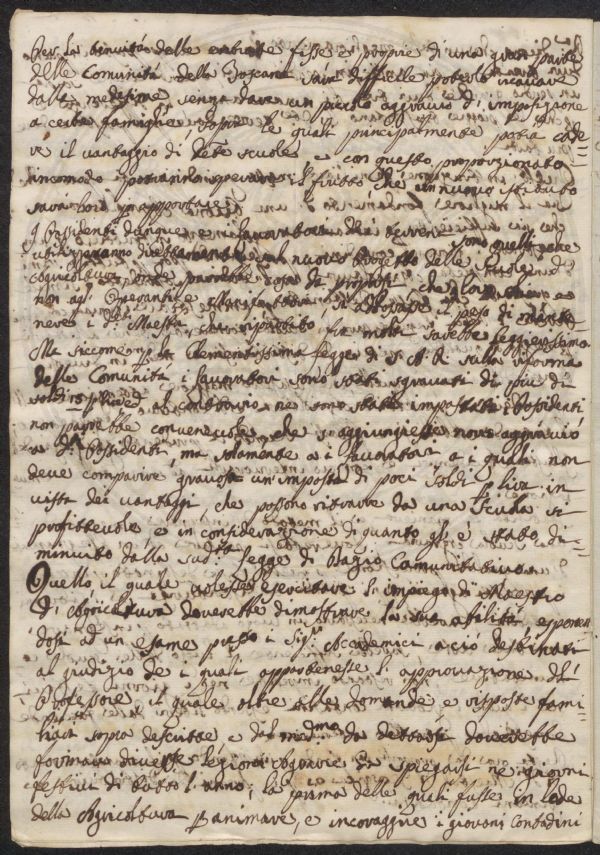 Per la tenuità delle entrate fisse e proprie di una gran parte
delle Comunità della Toscana sarà difficile poterlo ricavare
dalle medesime senza dare un picciolo aggravio d'imposizione
a certe famiglie, sopra le quali principalmente possa cade=
re il vantaggio di dette scuole e con questo proporzionato
incomodo potranno sperare il frutto che un nuovo istituto
sarà loro per apportare.
I Possidenti dunque e i lavoratori di terreni sono quelli che
utilizzeranno direttamente nel nuovo Progetto delle Scuole di
Agricoltura, onde parrebbe cosa da proporsi che
non agl'Operanti e il peso di mante=
nere i d.i Maestri, che repartito fra molti sarebbe leggierissimo
Ma siccome per la Clementissima legge di S. A. R. sulla riforma
delle Comunità i lavoratori sono stati sgravati di più di
soldi e al contrario ne sono stati impostati i Possidenti
non parrebbe convenevole che si aggiungesse nuovo aggravio
a d.i Possidenti, ma solamente a i lavoratori a i quali non
deve comparire gravosa un'imposta di poci soldi per lira in
vista dei vantaggi, che possono ritrarre da una Scuola sì
profittevole e in considerazione di quanto gli è stato di=
minuito dalla sud.ta legge di Dazio Comunitativo.
Quello il quale volesse esercitare l'impiego di Maestro
di Agricoltura doverebbe dimostrare la sua abilità esponen=
dosi ad un esame presso i Sig.ri Accademici a ciò destinati
al giudizio de i quali appartenesse l'approvazione del
Professore, il quale oltre alle domande e risposte fami=
liari sopra descritte e dal med.mo da dettarsi doverebbe
formare diverse legioni Agrarie da spiegarsi ne giorni
festivi di tutto l'anno; la prima delle quali fusse in lode
della Agricoltura per animare, e incoraggire i giovani Contadini